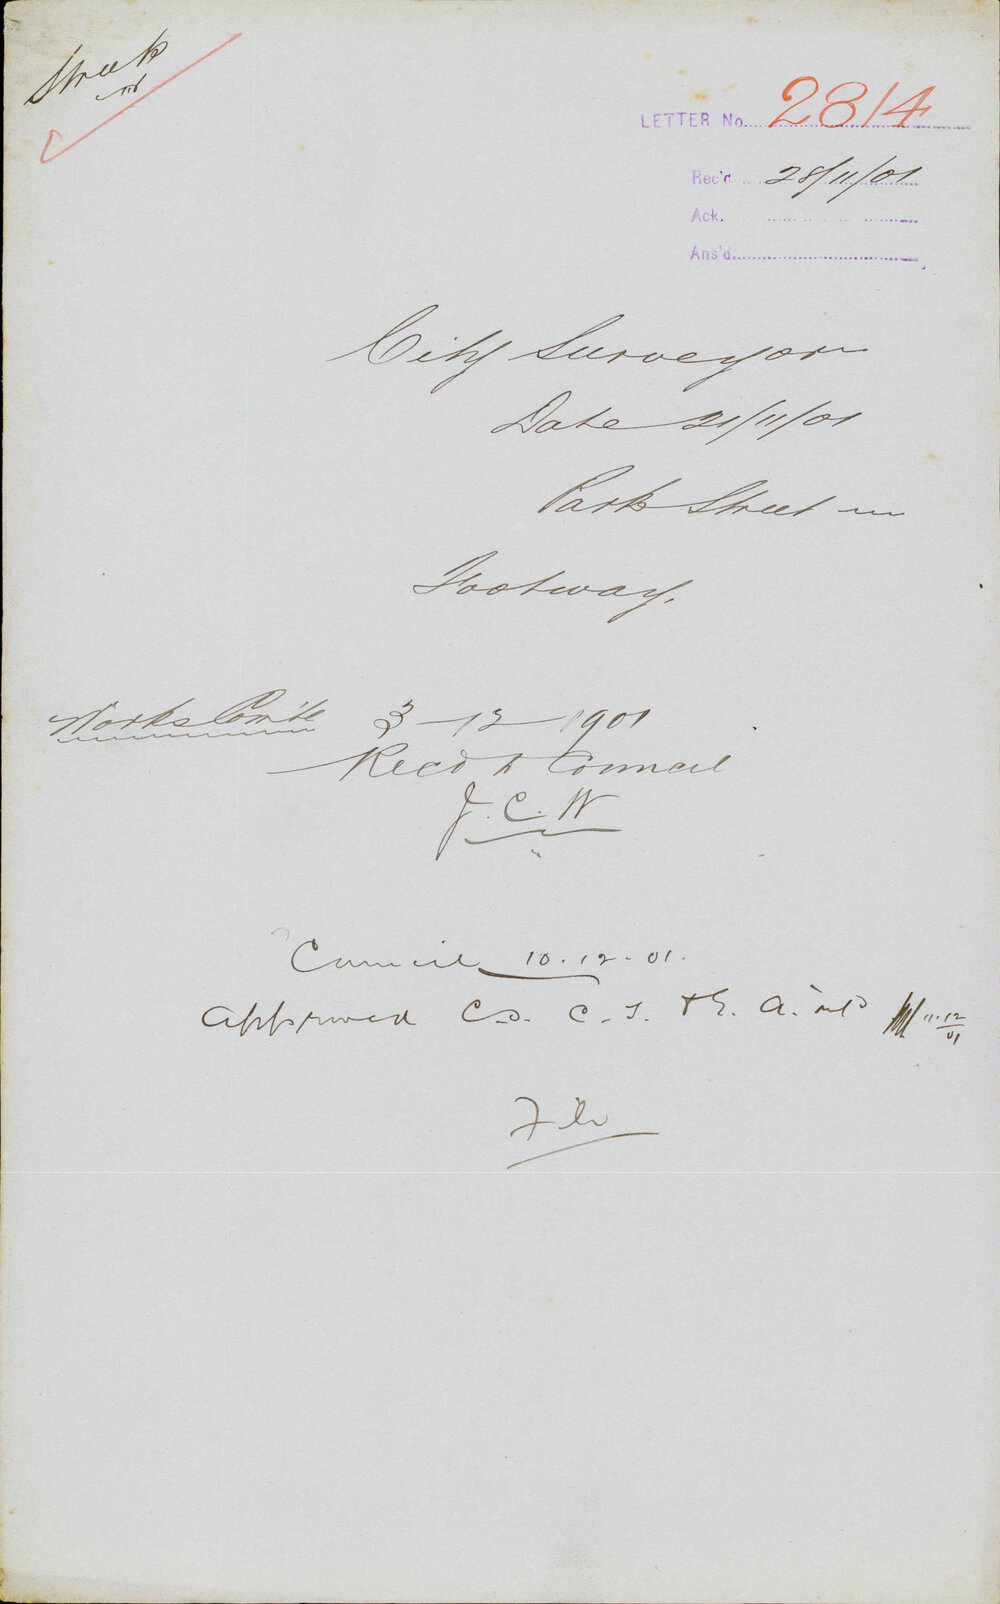 Streets
LETTER No. 2814
Rec'd 28/11/01
Ack.
Ans'd
City Surveyor
Date 21/11/01
Park Street
Footway.
Works Com'tee 3-12-1901
Recd to Council
J.C.W
Council 10.12.01.
Approved C.S. C.T. & E.A.
11.12/01
File